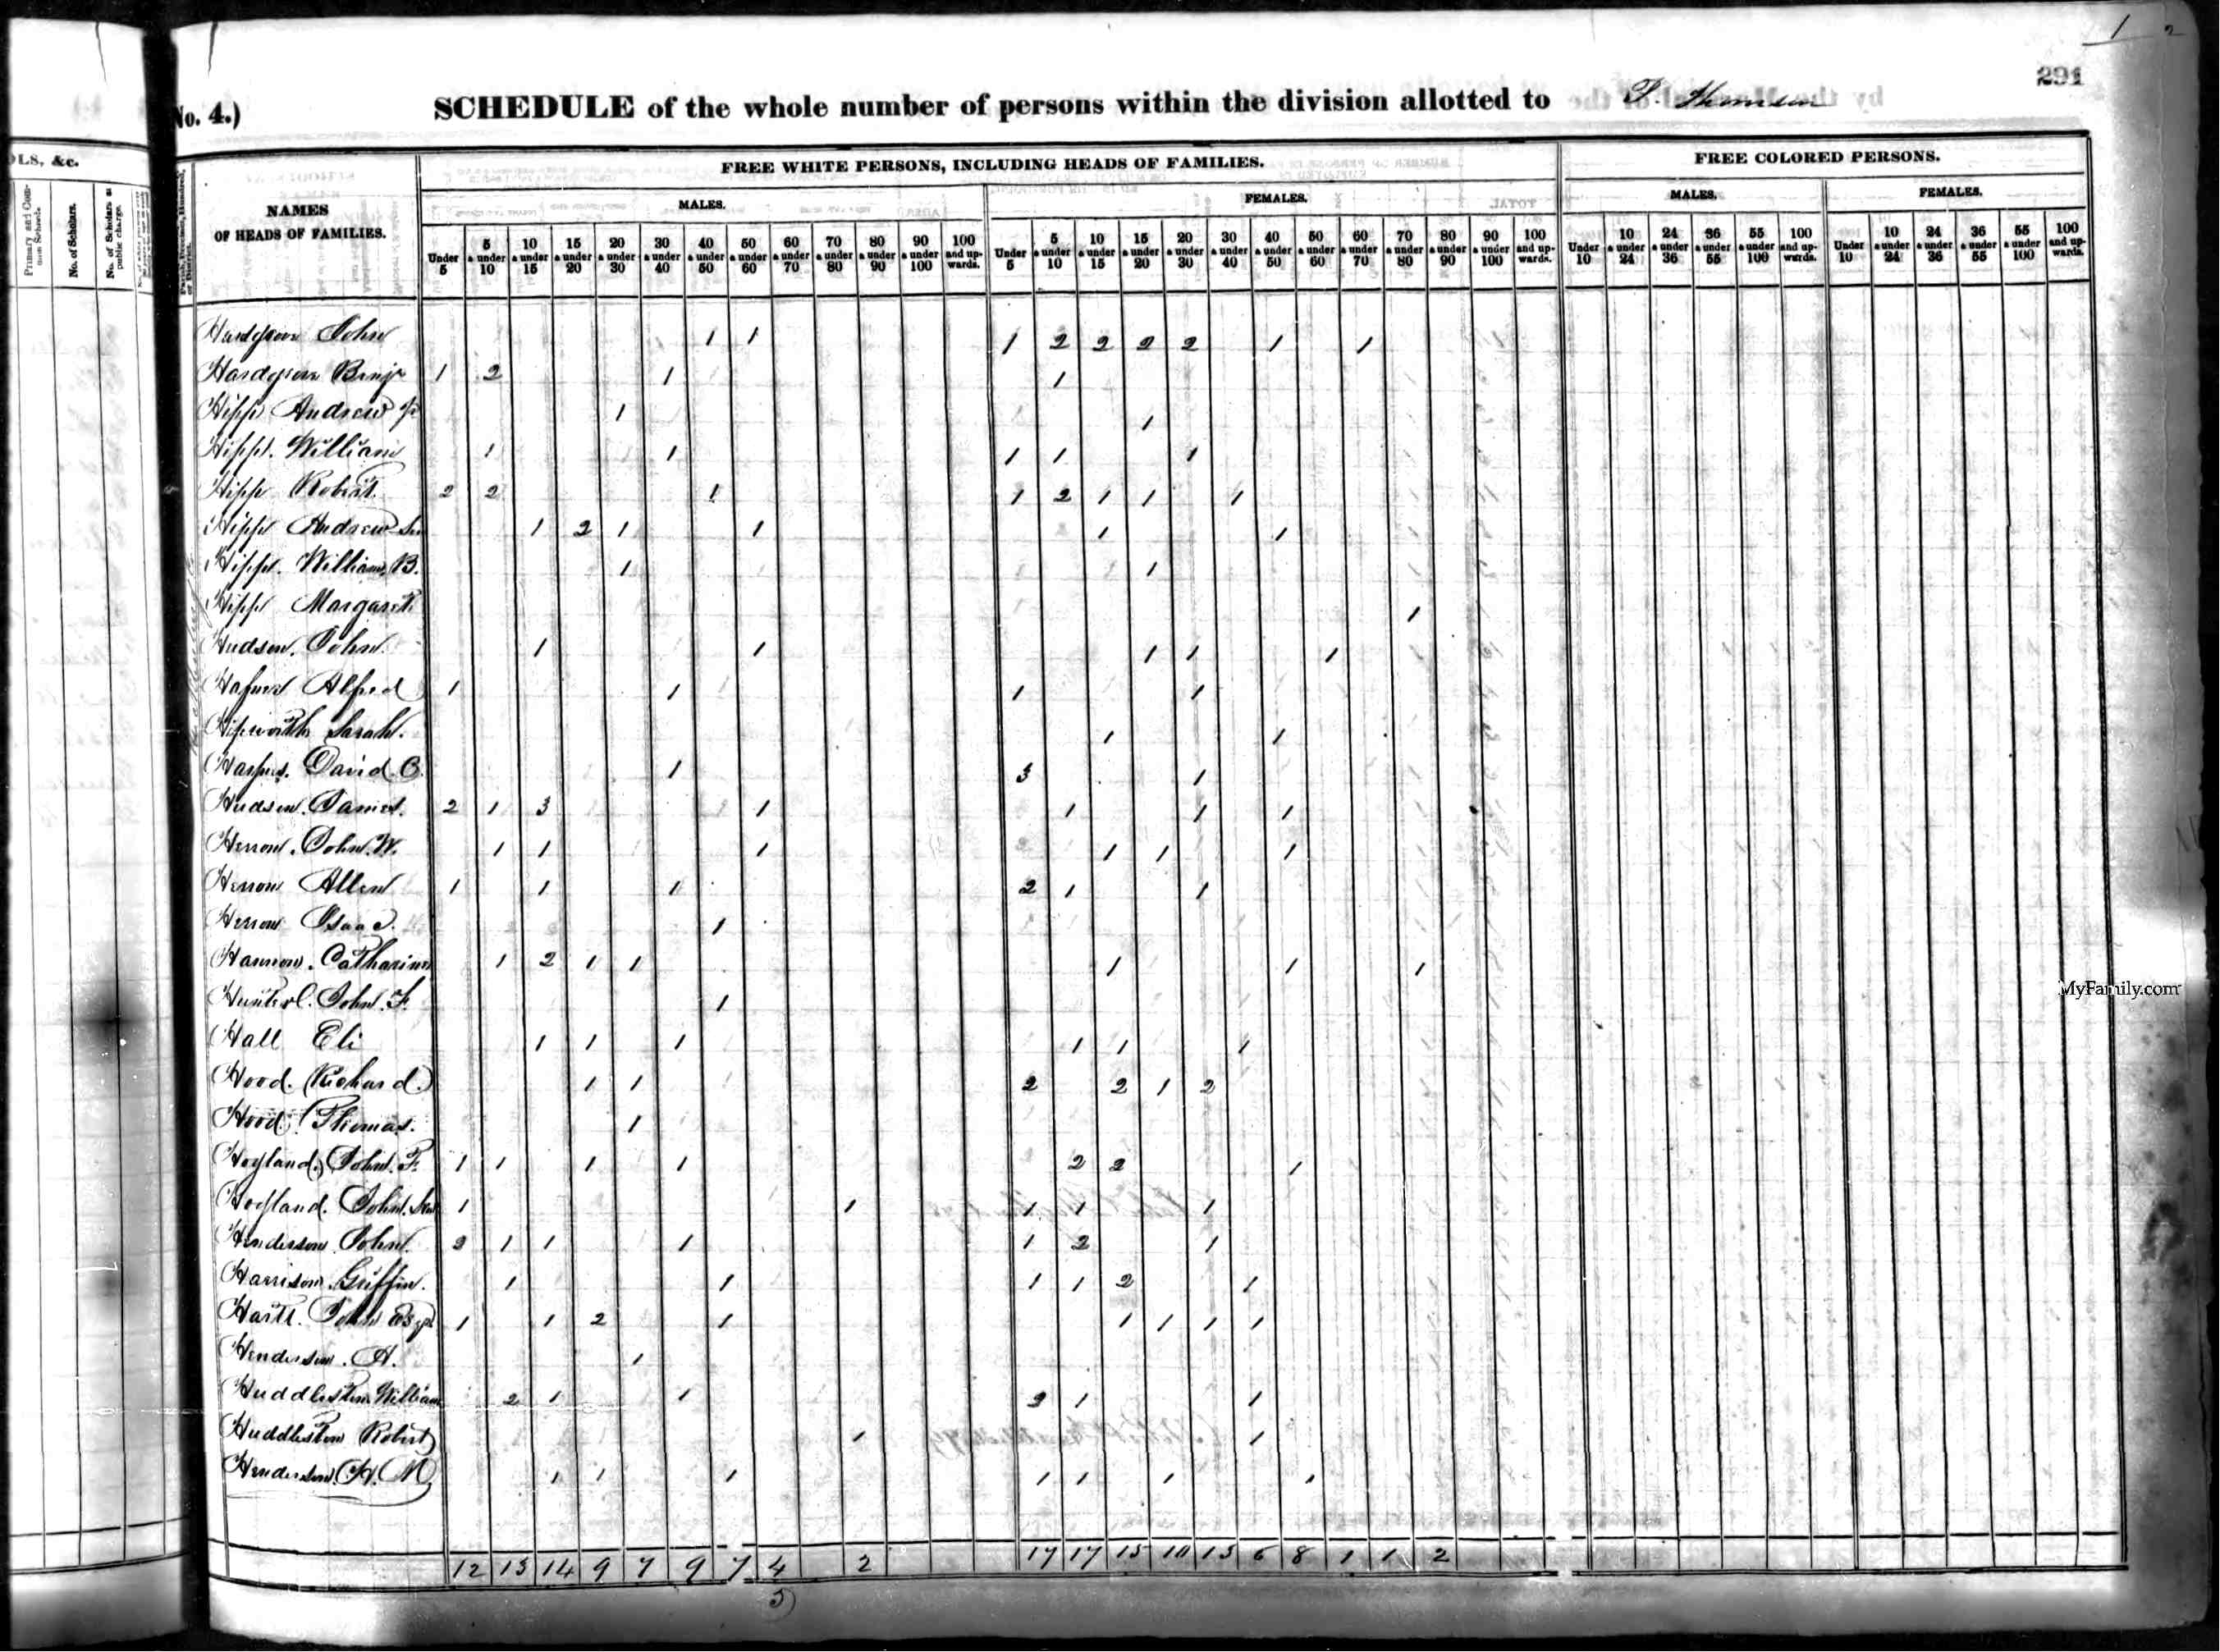 1 2
291
No. 4.) SCHEDULE of the whole number of persons within the division allotted to
OLS, &c.
Primary and Common Schools.
No. of Scholars.
No. of Scholars at public charge.
NAMES
OF HEADS OF FAMILIES.
FREE WHITE PERSONS, INCLUDING HEADS OF FAMILIES.
FREE COLORED PERSONS.
MALES. FEMALES. MALES. FEMALES.
Under 5 5 & under 10 10 & under 15 15 & under 20 20 & under 30 30 & under 40 40 & under 50 50 & under 60 60 & under 70 70 & under 80 80 & under 90 90 & under 100 100 and upwards. Under 5 5 & under 10 10 & under 15 15 & under 20 20 & under 30 30 & under 40 40 & under 50 50 & under 60 60 & under 70 70 & under 80 80 & under 90 90 & under 100 100 and upwards. Under 10 10 & under 24 24 & under 36 36 & under 55 55 & under 100 100 and upwards. Under 10 10 & under 24 24 & under 36 36 & under 55 55 & under 100 100 and upwards.
John 1 1 1 2 2 2 2 1 1
Benj 1 2 1 1
Hipp Andrew Jr 1 1
Hipp. William 1 1 1 1 1
Hipp Robert 2 2 1 1 2 1 1 1
Hipp Andrew Sen 1 2 1 1 1 1
Hipp. William, B. 1 1
Hipp Margaret 1
Hudson. John 1 1 1 1 1
Alfred 1 1 1 1
Hipworth Sarah. 1 1
David. 1 3 1
Hudson. James. 2 1 3 1 1 1 1
Herron. John. W. 1 1 1 1 1 1
Herron Allen 1 1 1 2 1 1
Herron Isaac. 1
Catharine 1 2 1 1 1 1 1
John. F. 1
Hall Eli 1 1 1 1 1 1
Hood. Richard. 1 1 2 2 1 2
Hood. Thomas. 1
Hoyland. John. F. 1 1 1 1 2 2 1
Hoyland. John. Sen 1 1 1 1 1
Henderson John. 3 1 1 1 1 2 1
Harrison. Griffin. 1 1 1 1 2 1
John Esqr 1 1 2 1 1 1 1 1
Henderson. A. 1
Huddleston William 2 1 1 3 1 1
Huddleston Robert 1 1
Henderson. H. M 1 1 1 1 1 1 1
12 13 14 9 7 9 7 4 2 17 17 15 10 15 6 8 1 1 2
5)
MyFamily.com